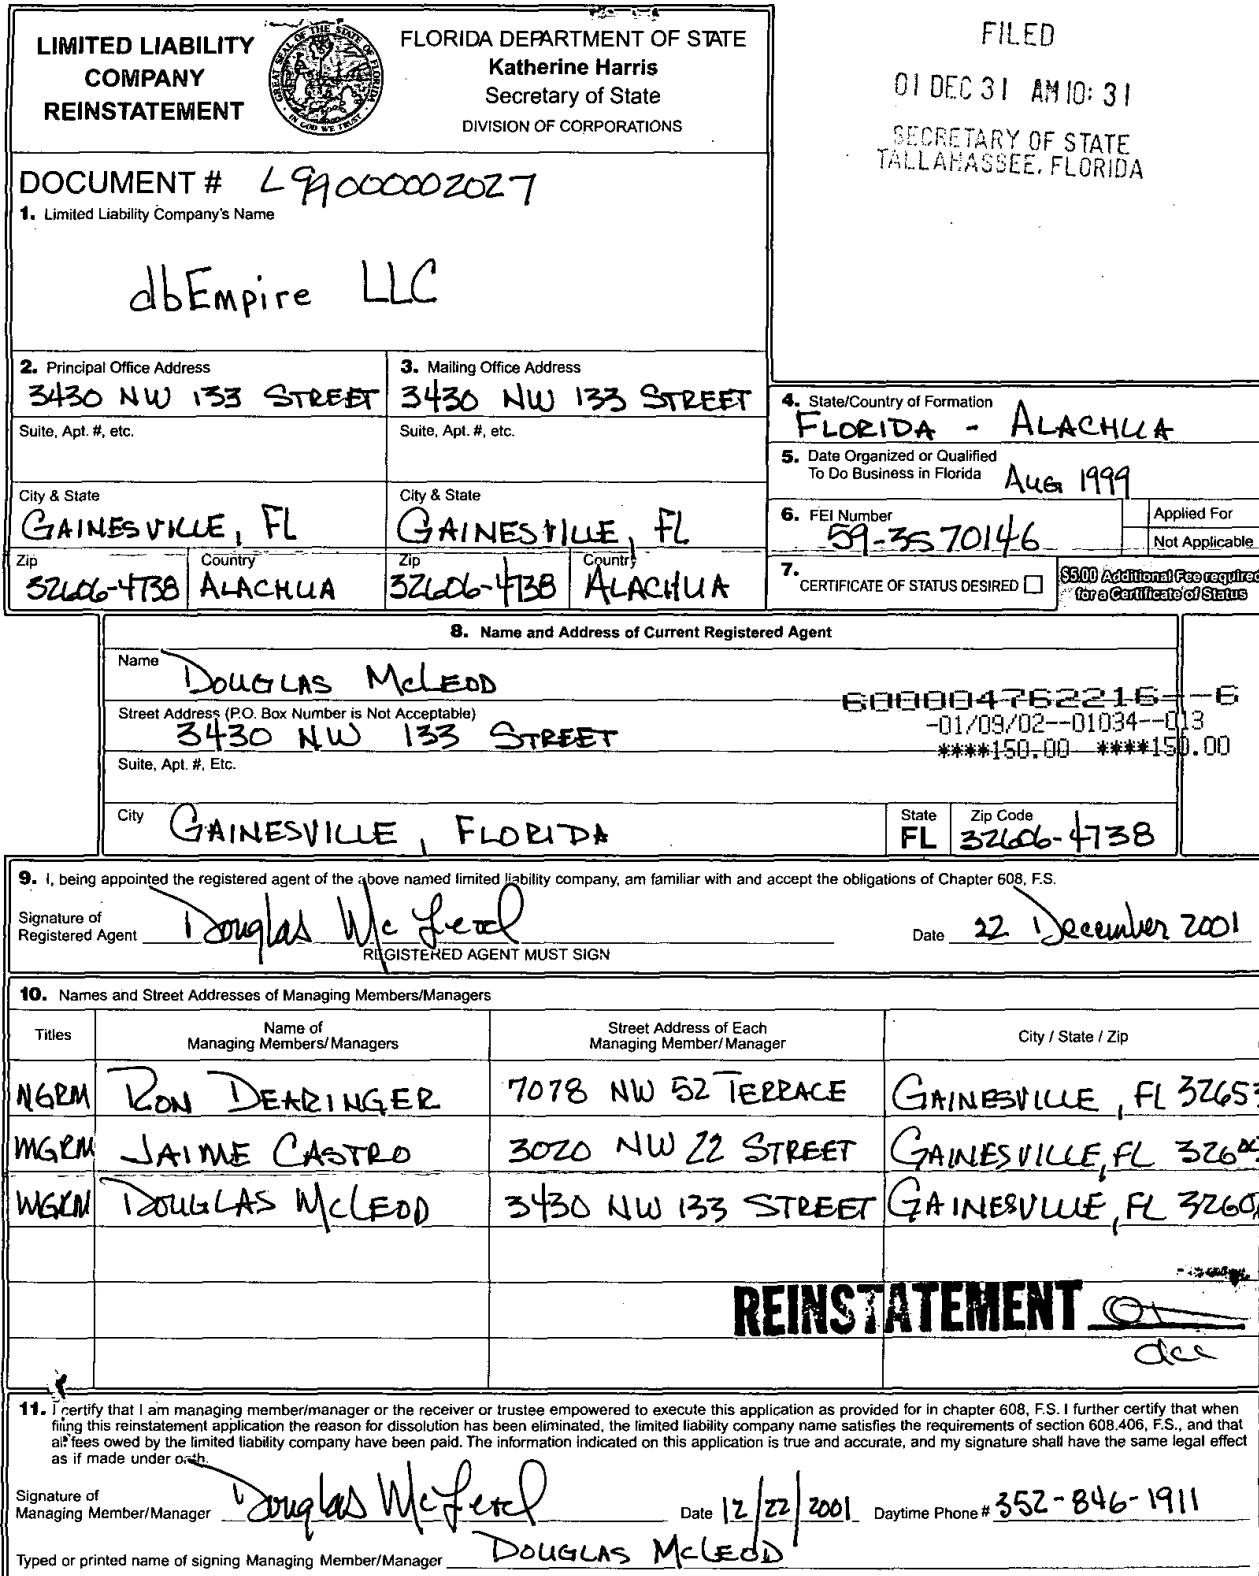 LIMITED LIABILITY
COMPANY
REINSTATEMENT
GREAT SEAL OF THE STATE OF FLORIDA
IN GOD WE TRUST
FLORIDA DEPARTMENT OF STATE
Katherine Harris
Secretary of State
DIVISION OF CORPORATIONS
FILED
01 DEC 31 AM 10: 31
SECRETARY OF STATE
TALLAHASSEE, FLORIDA
DOCUMENT # L99000002027
1. Limited Liability Company's Name
dbEmpire LLC
2. Principal Office Address
3430 NW 133 STREET
Suite, Apt. #, etc.
City & State
GAINESVILLE, FL
Zip Country
32606-4738 ALACHUA
3. Mailing Office Address
3430 NW 133 STREET
Suite, Apt. #, etc.
City & State
GAINESVILLE, FL
Zip Country
32606-4738 ALACHUA
4. State/Country of Formation
FLORIDA - ALACHUA
5. Date Organized or Qualified
To Do Business in Florida Aug 1999
6. FEI Number
59-3570146
Applied For
Not Applicable
7. CERTIFICATE OF STATUS DESIRED
$5.00 Additional Fee required
for a Certificate of Status
8. Name and Address of Current Registered Agent
Name DOUGLAS McLEOD
Street Address (P.O. Box Number is Not Acceptable)
3430 NW 133 STREET
600004762216--6
-01/09/02--01034--013
****150.00 ****150.00
Suite, Apt. #, Etc.
City GAINESVILLE, FLORIDA
State
FL
Zip Code
32606-4738
9. I, being appointed the registered agent of the above named limited liability company, am familiar with and accept the obligations of Chapter 608, F.S.
Signature of
Registered Agent Douglas McLeod Date 22 December 2001
REGISTERED AGENT MUST SIGN
10. Names and Street Addresses of Managing Members/Managers
Titles
Name of
Managing Members/Managers
Street Address of Each
Managing Member/Manager
City / State / Zip
MGRM RON DEARINGER 7078 NW 52 TERRACE GAINESVILLE, FL 32653
MGRM JAIME CASTRO 3020 NW 22 STREET GAINESVILLE, FL
MGRM DOUGLAS McLEOD 3430 NW 133 STREET GAINESVILLE, FL 3260
REINSTATEMENT
dcc
11. I certify that I am managing member/manager or the receiver or trustee empowered to execute this application as provided for in chapter 608, F.S. I further certify that when
filing this reinstatement application the reason for dissolution has been eliminated, the limited liability company name satisfies the requirements of section 608.406, F.S., and that
all fees owed by the limited liability company have been paid. The information indicated on this application is true and accurate, and my signature shall have the same legal effect
as if made under oath.
Signature of
Managing Member/Manager Douglas McLeod Date 12/22/2001 Daytime Phone # 352-846-1911
Typed or printed name of signing Managing Member/Manager DOUGLAS McLEOD